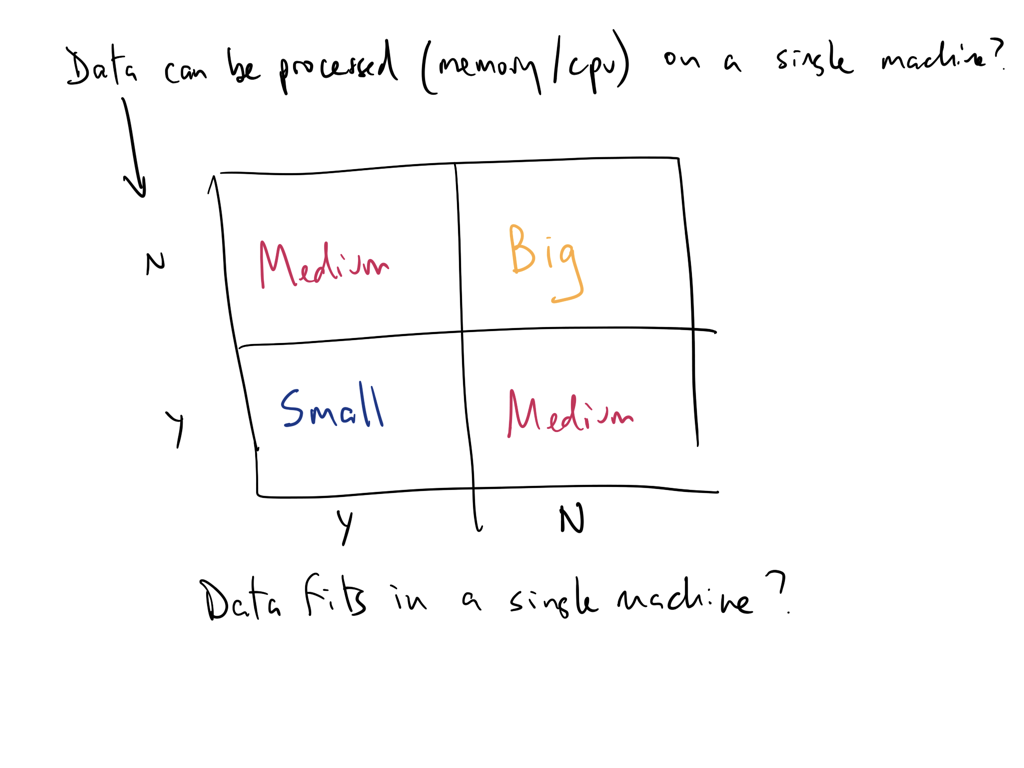 Data can be processed (memory/cpu) on a single machine?
N
Medium Big
Y
Small Medium
Y N
Data fits in a single machine?